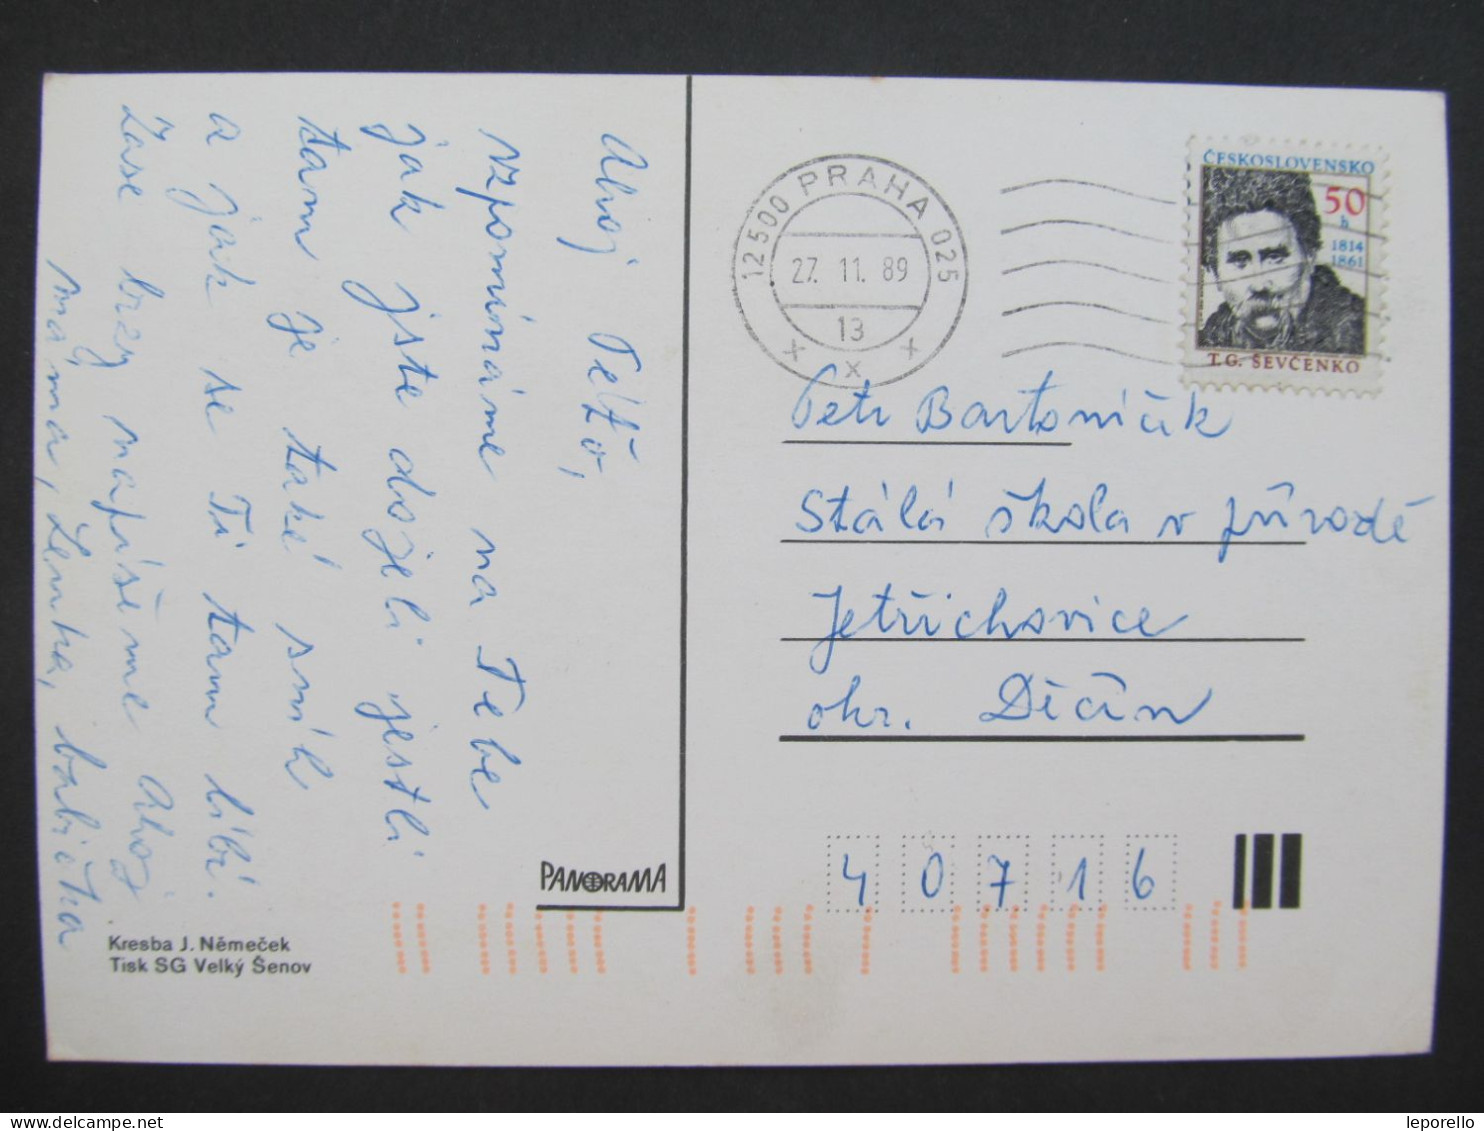 Ahoj Peťo,
vzpomínáme na Tebe
jak jste dojeli jestli
tam je také sníh
a jak se Ti tam líbí.
Zase brzy napíšeme Ahoj
máma, Lenka, babička
PANORAMA
Kresba J. Němeček
Tisk SG Velký Šenov
12500 PRAHA 025
27. 11. 89
13
ČESKOSLOVENSKO
50
h
1814
1861
T.G. ŠEVČENKO
Petr Bartoníček
Stálá škola v přírodě
Jetřichovice
okr. Děčín
40716
leporello